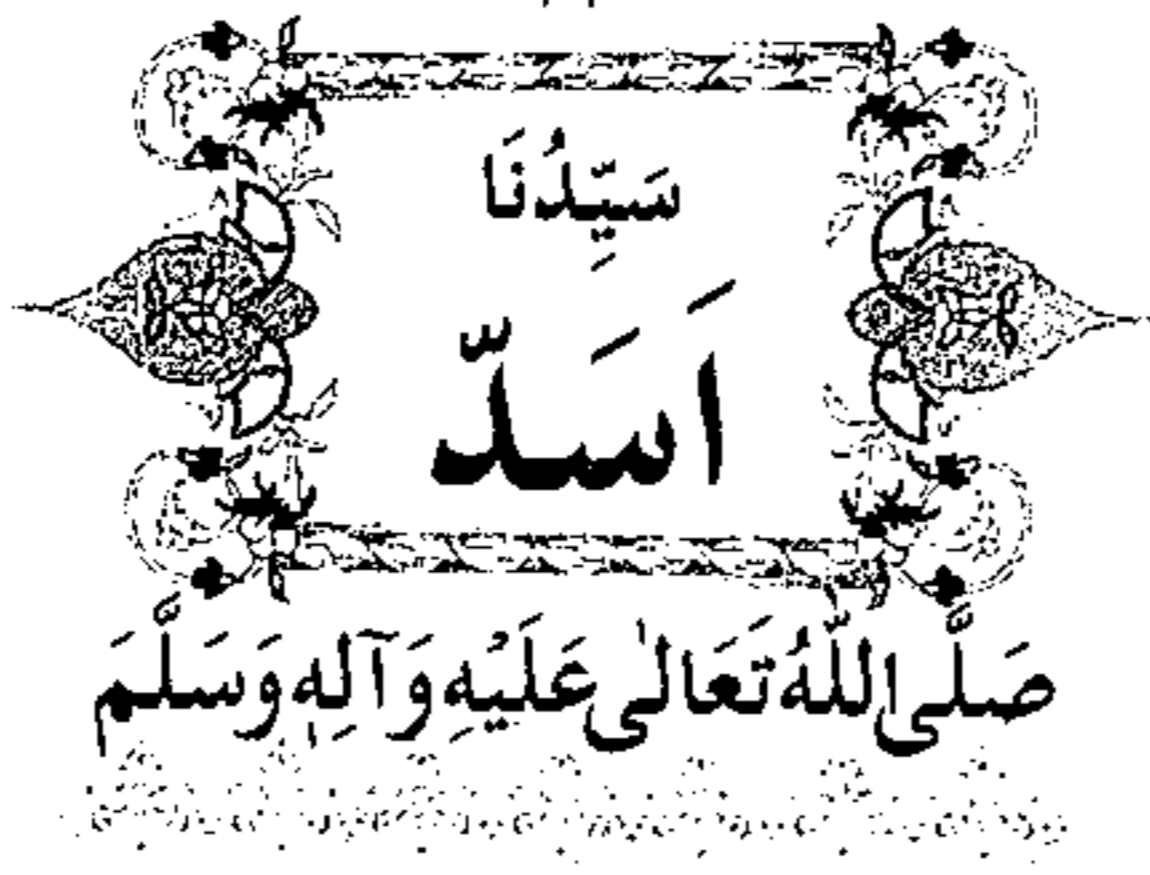 سَيِّدُنَا
اَسَدُّ
صَلَّى اللّٰهُ تَعَالٰى عَلَيْهِ وَآلِهٖ وَسَلَّمَ